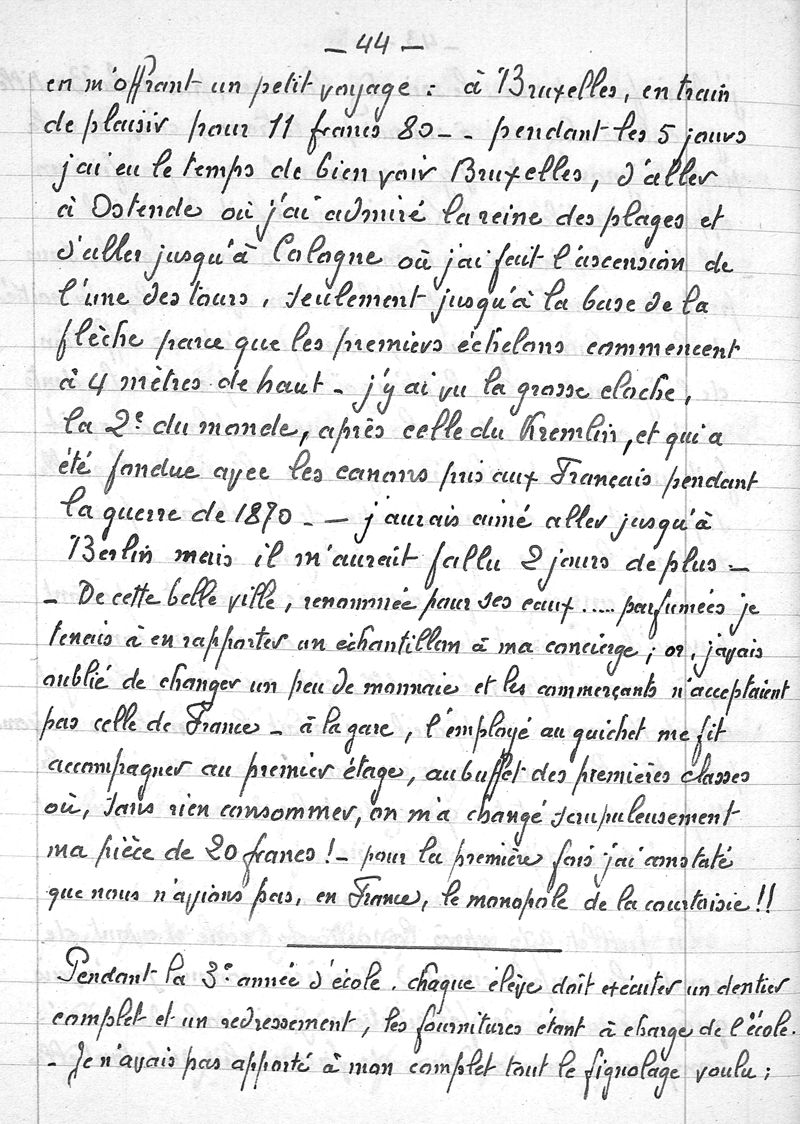 — 44 —
en m'offrant un petit voyage : à Bruxelles, en train
de plaisir pour 11 francs 80 - - pendant les 5 jours
j'ai eu le temps de bien voir Bruxelles, d'aller
à Ostende où j'ai admiré la reine des plages et
d'aller jusqu'à Cologne où j'ai fait l'ascension de
l'une des tours, seulement jusqu'à la base de la
flèche parce que les premiers échelons commencent
à 4 mètres de haut - j'y ai vu la grosse cloche,
la 2e du monde, après celle du Kremlin, et qui a
été fondue avec les canons pris aux Français pendant
la guerre de 1870 - — j'aurais aimé aller jusqu'à
Berlin mais il m'aurait fallu 2 jours de plus -
- De cette belle ville, renommée pour ses eaux ..... parfumées je
tenais à en rapporter un échantillon à ma concierge ; or, j'avais
oublié de changer un peu de monnaie et les commerçants n'acceptaient
pas celle de France - à la gare, l'employé au guichet me fit
accompagner au premier étage, au buffet des premières classes
où, sans rien consommer, on m'a changé scrupuleusement
ma pièce de 20 francs ! - pour la première fois j'ai constaté
que nous n'avions pas, en France, le monopole de la courtoisie !!
Pendant la 3e année d'école, chaque élève doit exécuter un dentier
complet et un redressement, les fournitures étant à charge de l'école.
- Je n'avais pas apporté à mon complet tout le fignolage voulu ;